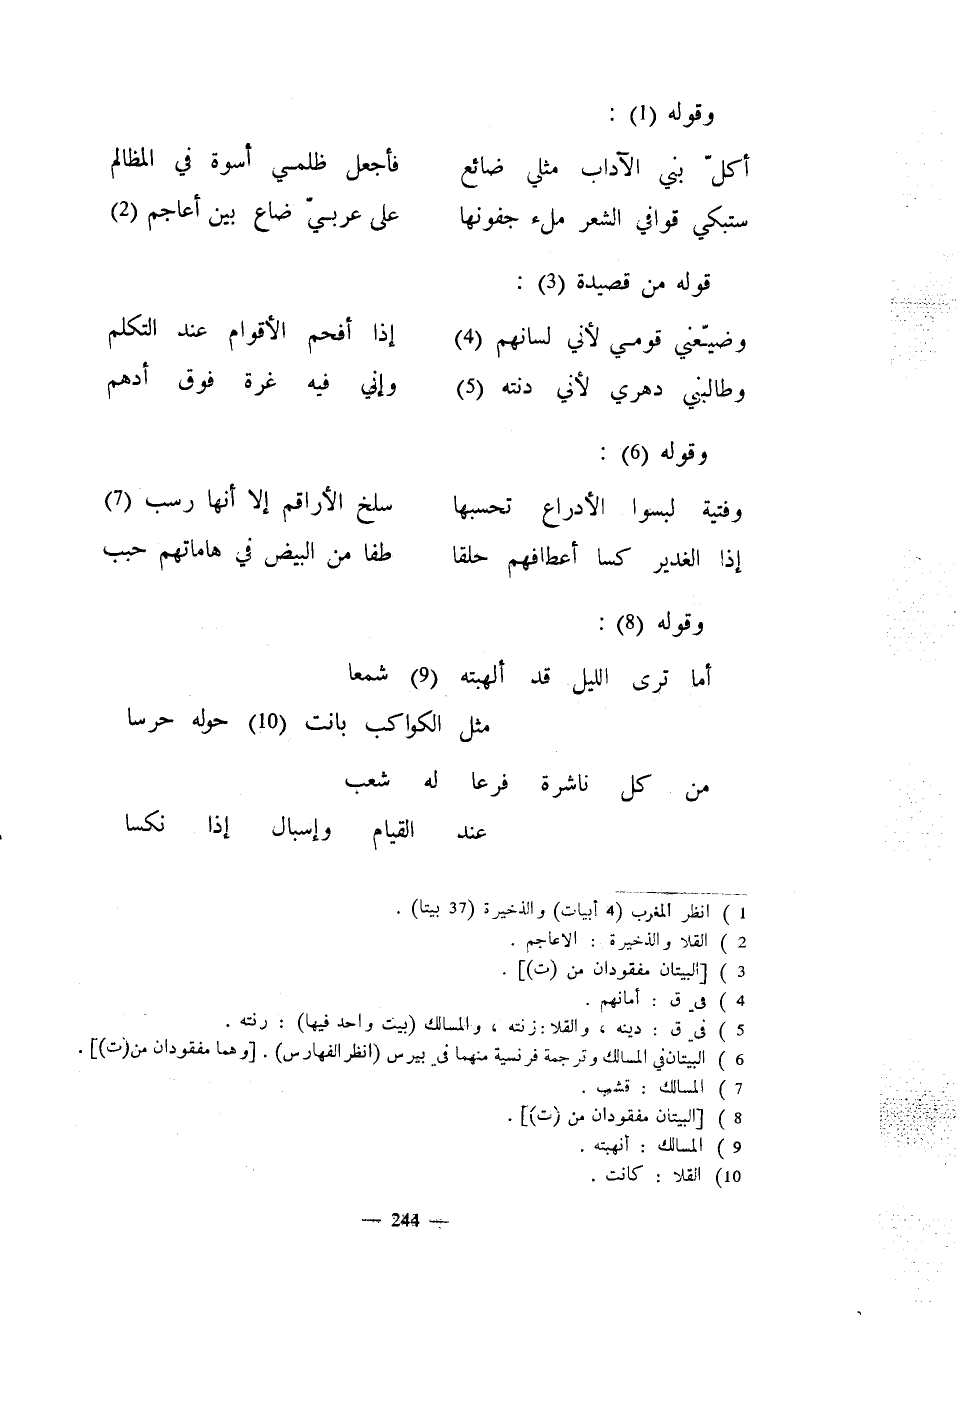 وقوله (1) :
أكلّ بني الآداب مثلي ضائع فأجعل ظلمي أسوة في المظالم
ستبكي قوافي الشعر ملء جفونها على عربيّ ضاع بين أعاجم (2)
قوله من قصيدة (3) :
وضيّعني قومي لأني لسانهم (4) إذا أفحم الأقوام عند التكلم
وطالبني دهري لأني دنته (5) وإني فيه غرة فوق أدهم
وقوله (6) :
وفتية لبسوا الأدراع تحسبها سلخ الأراقم إلا أنها رسب (7)
إذا الغدير كسا أعطافهم حلقا طفا من البيض في هاماتهم حبب
وقوله (8) :
أما ترى الليل قد ألهبته (9) شمعا
مثل الكواكب بانت (10) حوله حرسا
من كل ناشرة فرعا له شعب
عند القيام وإسبال إذا نكسا
1 ) انظر المغرب (4 أبيات) والذخيرة (37 بيتا) .
2 ) القلا والذخيرة : الاعاجم .
3 ) [البيتان مفقودان من (ت)] .
4 ) في ق : أمانهم .
5 ) في ق : دينه ، والقلا : زنته ، والمسالك (بيت واحد فيها) : رنته .
6 ) البيتان في المسالك وترجمة فرنسية منهما في بيرس (انظر الفهارس) . [وهما مفقودان من (ت)] .
7 ) المسالك : قشب .
8 ) [البيتان مفقودان من (ت)] .
9 ) المسالك : أنهبته .
10) القلا : كانت .
— 244 —